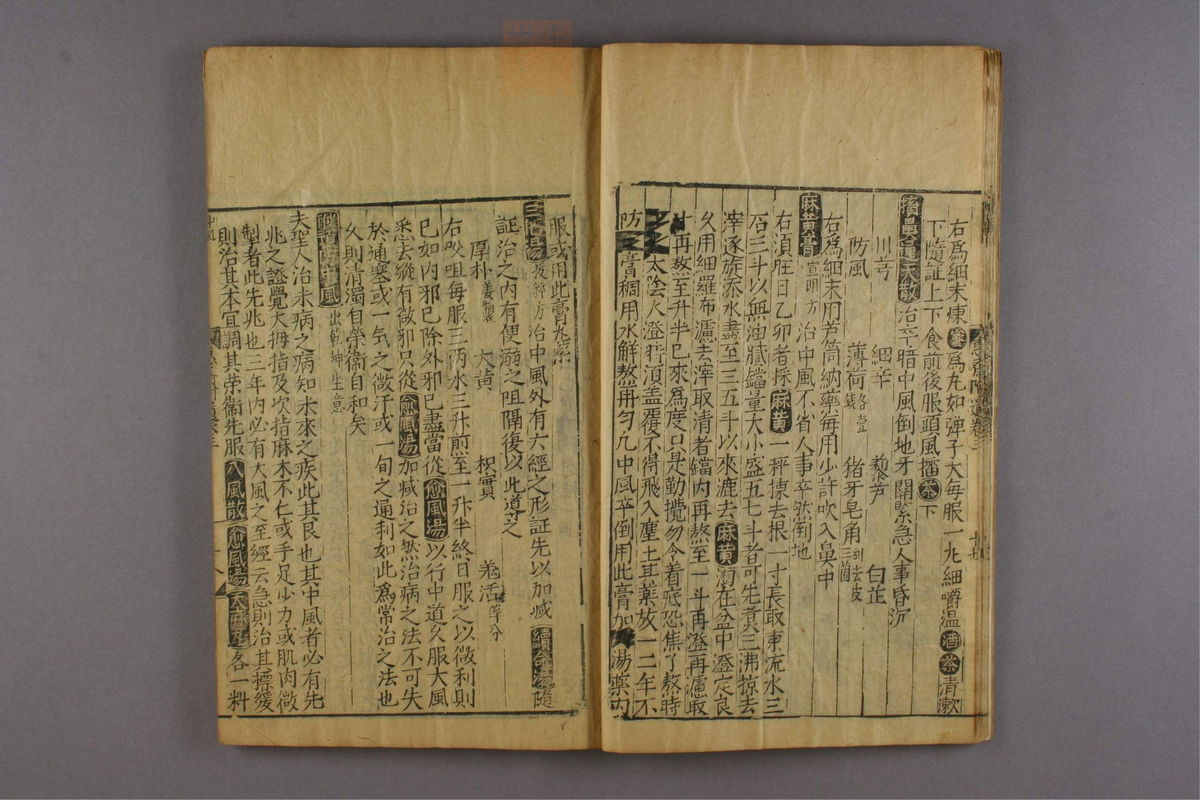 右爲細末煉蜜爲丸如彈子大每服一丸細嚼溫酒茶清漱
下隨証上下食前後服頭風擂茶下
治卒暗中風倒地牙關緊急人事昏沉
川芎 細辛 藜芦 白芷
防風 薄荷 猪牙皂角三箇去皮
右爲細末用芦筒納藥每用少許吹入鼻中
麻黃膏 宣明方 治中風不省人事卒然倒地
右須旺日乙卯者採麻黃一秤揀去根一寸長取東流水三
石三斗以無油膩鐺量大小盛五七斗者可先煮三沸掠去
滓逐旋添水盡至三五斗以來漉去麻黃在盆中澄定良
久用細羅布濾去滓取清者鐺內再熬至一斗再澄再濾取
汁再熬至升半已來爲度只是勤攪勿令着底恐焦了熬時
太陰人澄行須盖覆不得飛入塵土其藥放一二年不
防膏稠用水解熬再勻凡中風卒倒用此膏加湯藥內
服或用此膏丸藥
三化湯 治中風外有六經之形証先以加减續命湯隨
証治之內有便溺之阻隔復以此道之
厚朴姜製 大黃 枳實 羌活等分
右㕮咀每服三兩水三升煎至一升半終日服之以微利則
已如內邪已除外邪已盡當從愈風湯以行中道久服大風
悉去縱有微邪只從愈風湯加減治之然治病之法不可失
於通塞或一氣之微汗或一旬之通利如此爲常治之法也
久則清濁自榮衛自和矣
中風 出乾坤生意
夫聖人治未病之病知未來之疾此其良也其中風者必有先
兆之證覺大拇指及次指麻木不仁或手足少力或肌肉微
製者此先兆也三年內必有大風之至經云急則治其標緩
則治其本宜調其荣衞先服八風散愈風湯天麻丸各一料